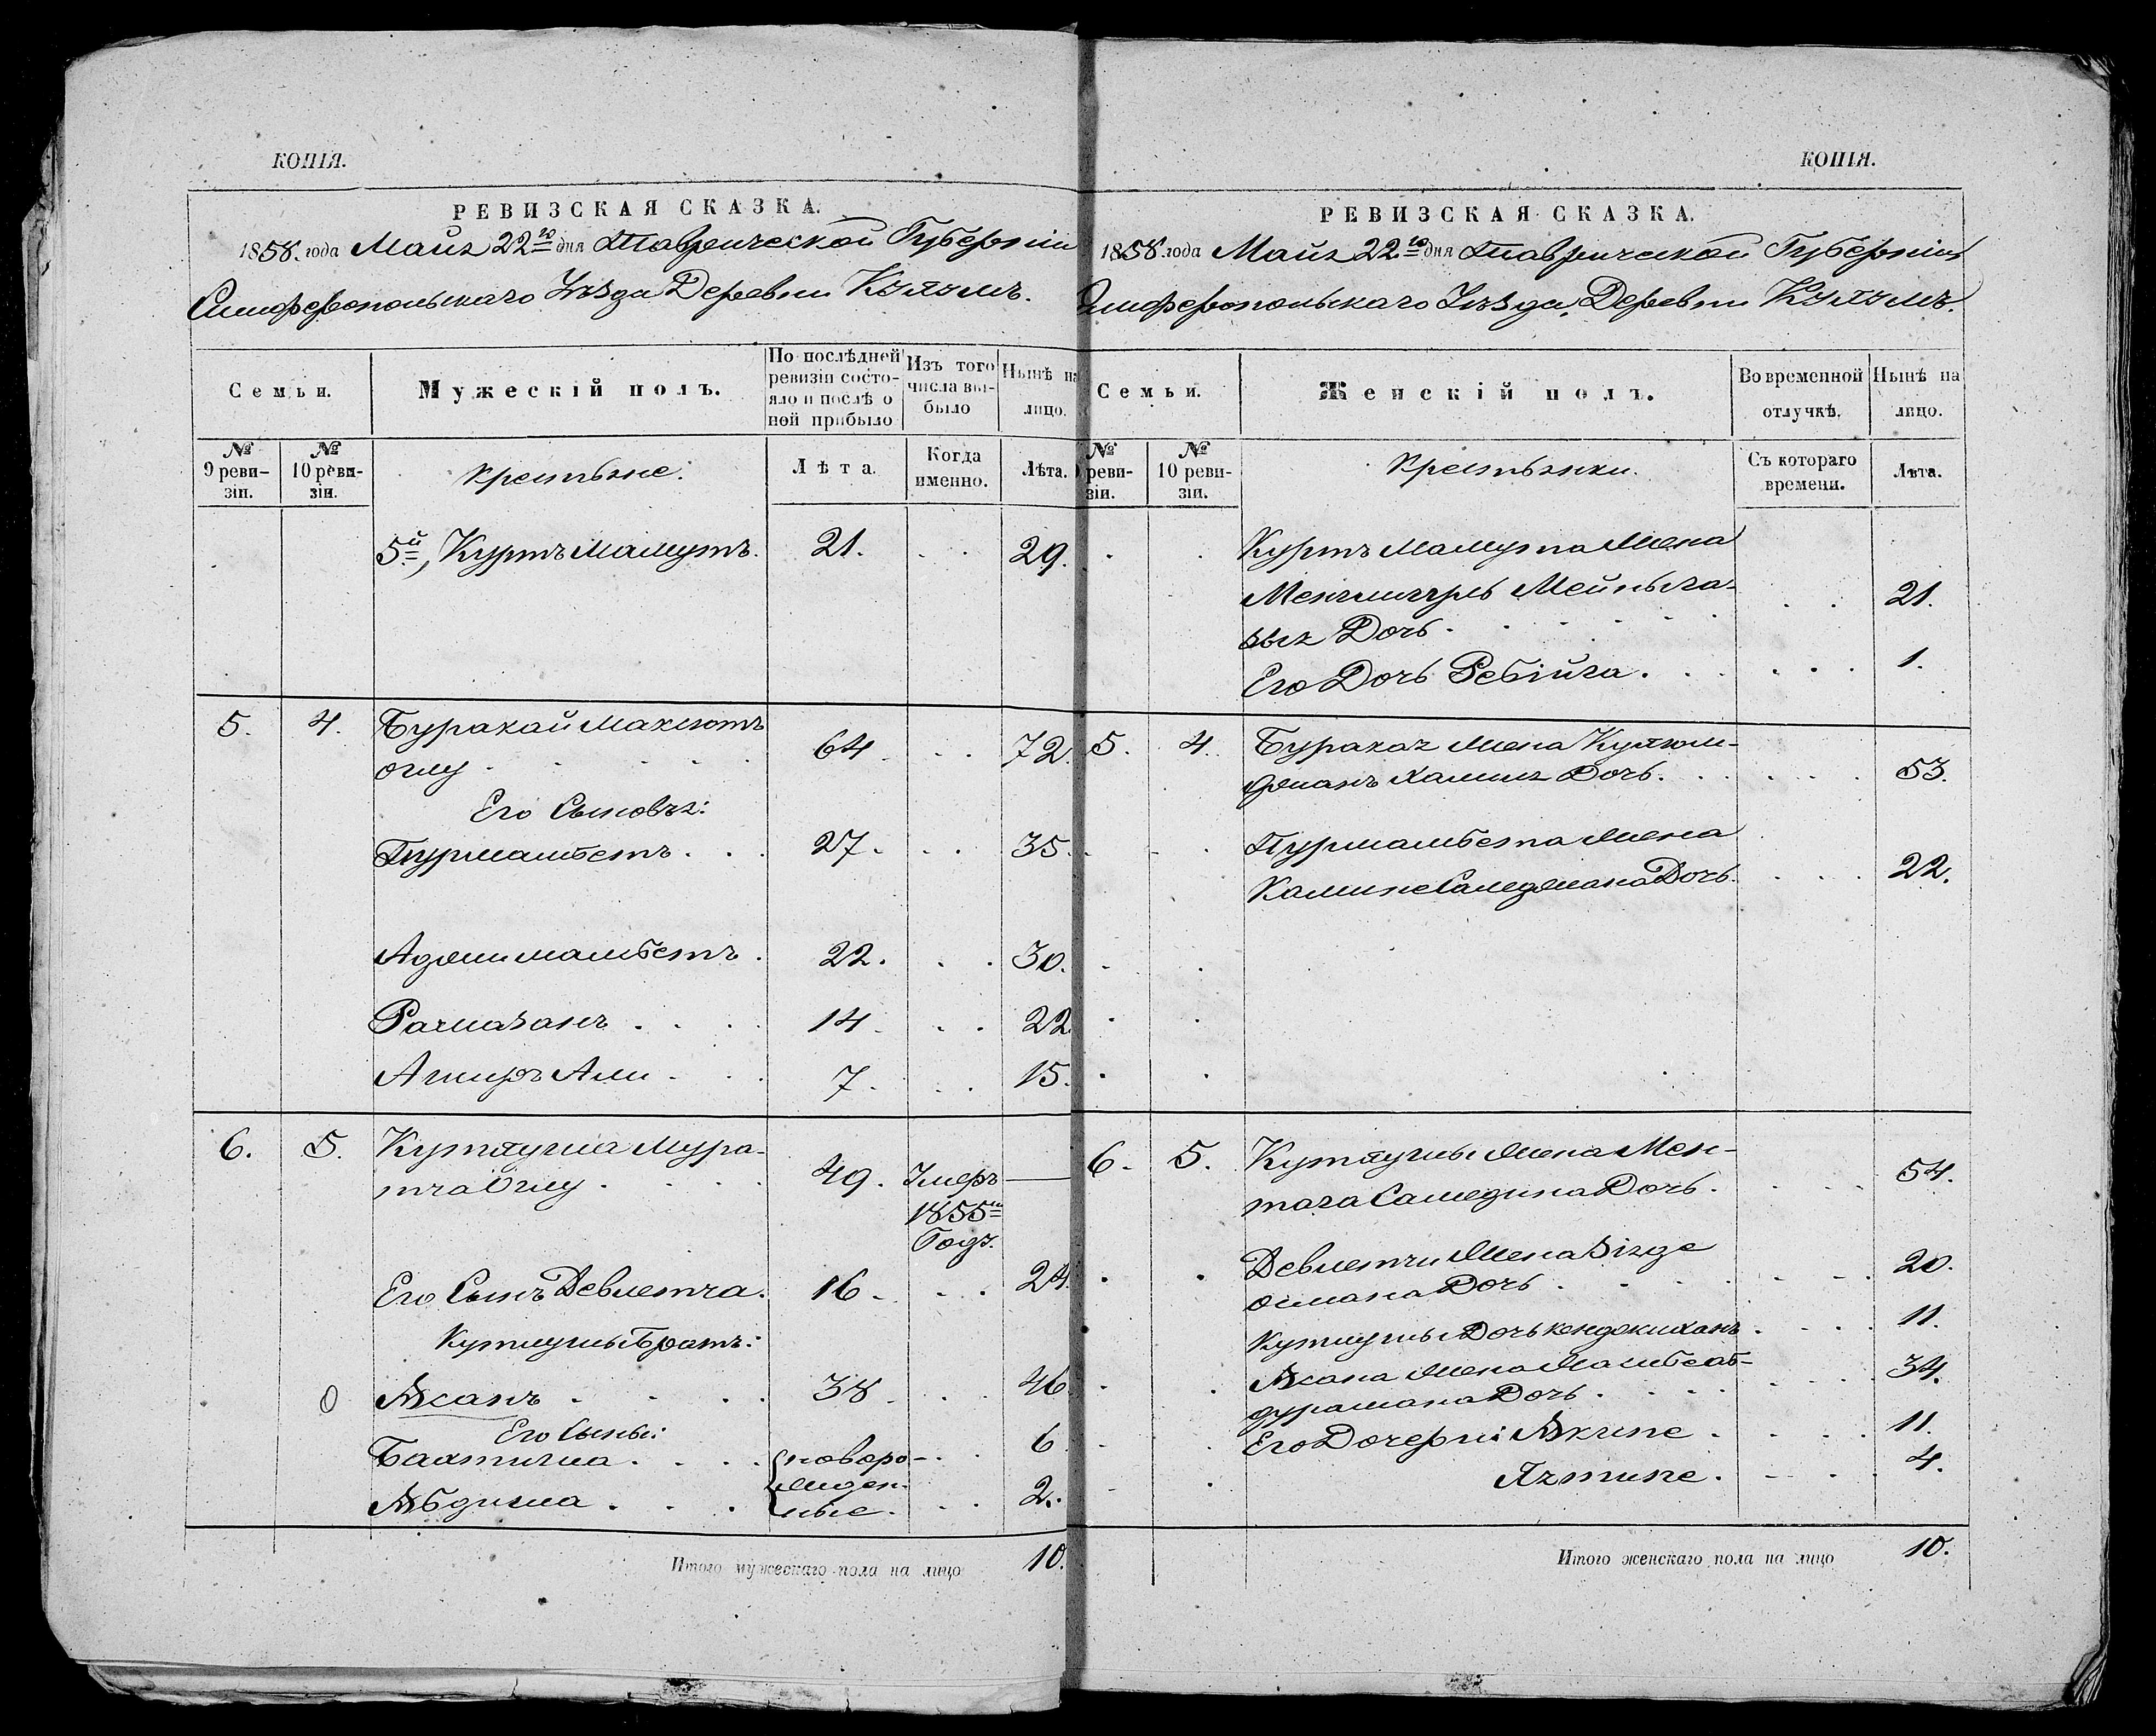 КОПІЯ.
РЕВИЗСКАЯ СКАЗКА.
1858. года Маія 22го дня Таврической Губерніи
Симферопольскаго Уѣзда Деревни
Семьи.
Мужескій полъ.
По послѣдней ревизіи состояло и послѣ оной прибыло
Изъ того числа выбыло
Нынѣ на лицо.
№ 9 ревизіи.
№ 10 ревизіи.
Крестьяне:
Лѣта.
Когда именно.
Лѣта.
5й, Куртъ Мамутъ. 21. 29.
5. 4. Буракай Максютъ
оглу 64. 72.
Его Сыновья:
Нурмамбетъ 27. 35.
Аджимамбетъ. 22. 30.
Рамазанъ 14. 22
Амиръ Али 7. 15.
6. 5. Кутлугша Мура-
тча Оглу 49. Умеръ —
1855го
Годъ.
Его Сынъ Девлетча. 16. 24.
Кутлугши Братъ:
0 Асанъ 38. 46
Его Сыны:
Бахтигша {новоро- 6
жден-
Абдигша ные. 2.
Итого мужескаго пола на лицо 10.
КОПІЯ.
РЕВИЗСКАЯ СКАЗКА.
1858. года Маія 22го дня Таврической Губерніи
Симферопольскаго Уѣзда, Деревни
Семьи.
Женскій полъ.
Во временной отлучкѣ.
Нынѣ на лицо.
№ 9 ревизіи.
№ 10 ревизіи.
Крестьянки.
Съ котораго времени.
Лѣта.
Куртъ Мамута Жена
21.
Дочь
Его Дочь Ребійга. 1.
5. 4. Буракая Жена Кулюм-
Халила Дочь. 53.
Нурмамбета Жена
Дочь. 22.
6. 5. Кутлугши Жена Мен-
Самедина Дочь. 54.
Девлетчи Жена
османа Дочь 20.
Кутлугши Дочь 11.
Асана Жена Мамбеаб-
дурамана Дочь 34.
Его Дочери: 11.
4.
Итого женскаго пола на лицо 10.